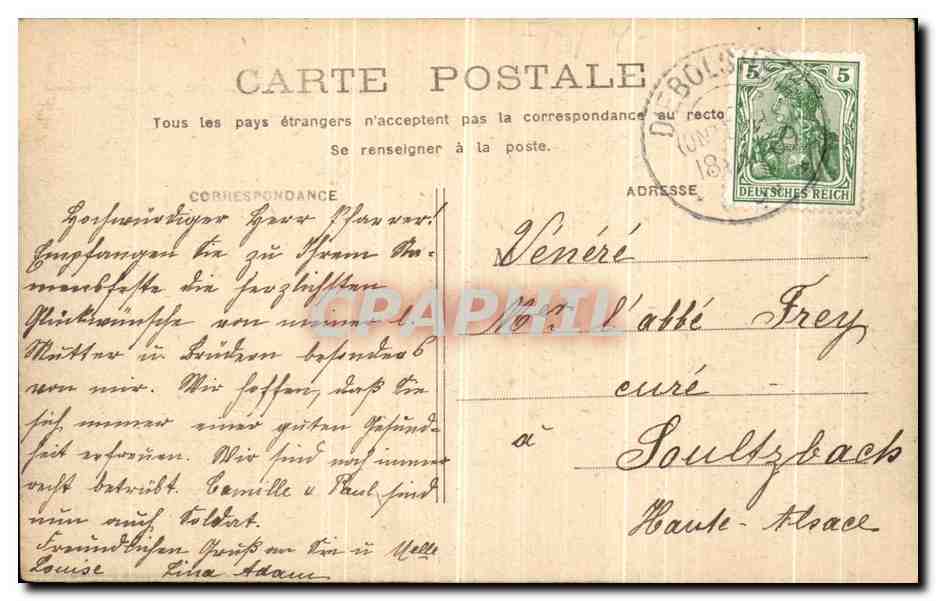 CARTE POSTALE
Tous les pays étrangers n'acceptent pas la correspondance au recto
Se renseigner à la poste.
CORRESPONDANCE
ADRESSE
5 5
DEUTSCHES REICH
DIEBOLSH
Hochwürdiger Herr Pfarrer!
Empfangen Sie zu Ihrem Na-
mensfeste die herzlichsten
Glückwünsche von meiner l.
Mutter u. Brüdern besonders
von mir. Wir hoffen, daß Sie
sich immer einer guten Gesund-
heit erfreuen. Wir sind noch immer
recht betrübt. Camille u Paul sind
nun auch Soldat.
Freundlichen Gruß an Sie u Melle
Louise Lina Adam
Vénéré
Mer l'abbé Frey
curé
à Soultzbach
Haute-Alsace
CPAPHIL